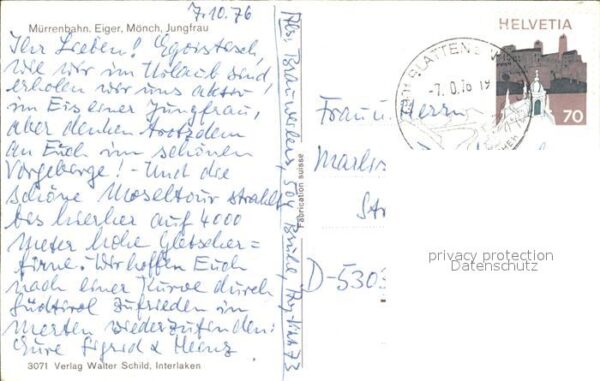 7.10.76
Mürrenbahn. Eiger, Mönch, Jungfrau
Ihr Lieben! Egoistisch,
wie wir im Urlaub sind
erholen wir uns aktiv
im Eis einer Jungfrau,
aber denken trotzdem
an Euch im schönen
Vorgebirge! - Und die
schöne Moseltour strahlt
bis hierher auf 4000
Meter hohe Gletscher=
firne. Wir hoffen Euch
nach einer Kurve durch
Südtirol zufrieden in
Merten wiederzufinden:
Eure Sigrid & Heinz
3071 Verlag Walter Schild, Interlaken
Abs. Brauweiler, 504 Brühl,
Fabrication suisse
HELVETIA
70
BLATTEN
-7. 0.76 19
Frau u. Herrn
Markus
Str
D-5303
privacy protection
Datenschutz